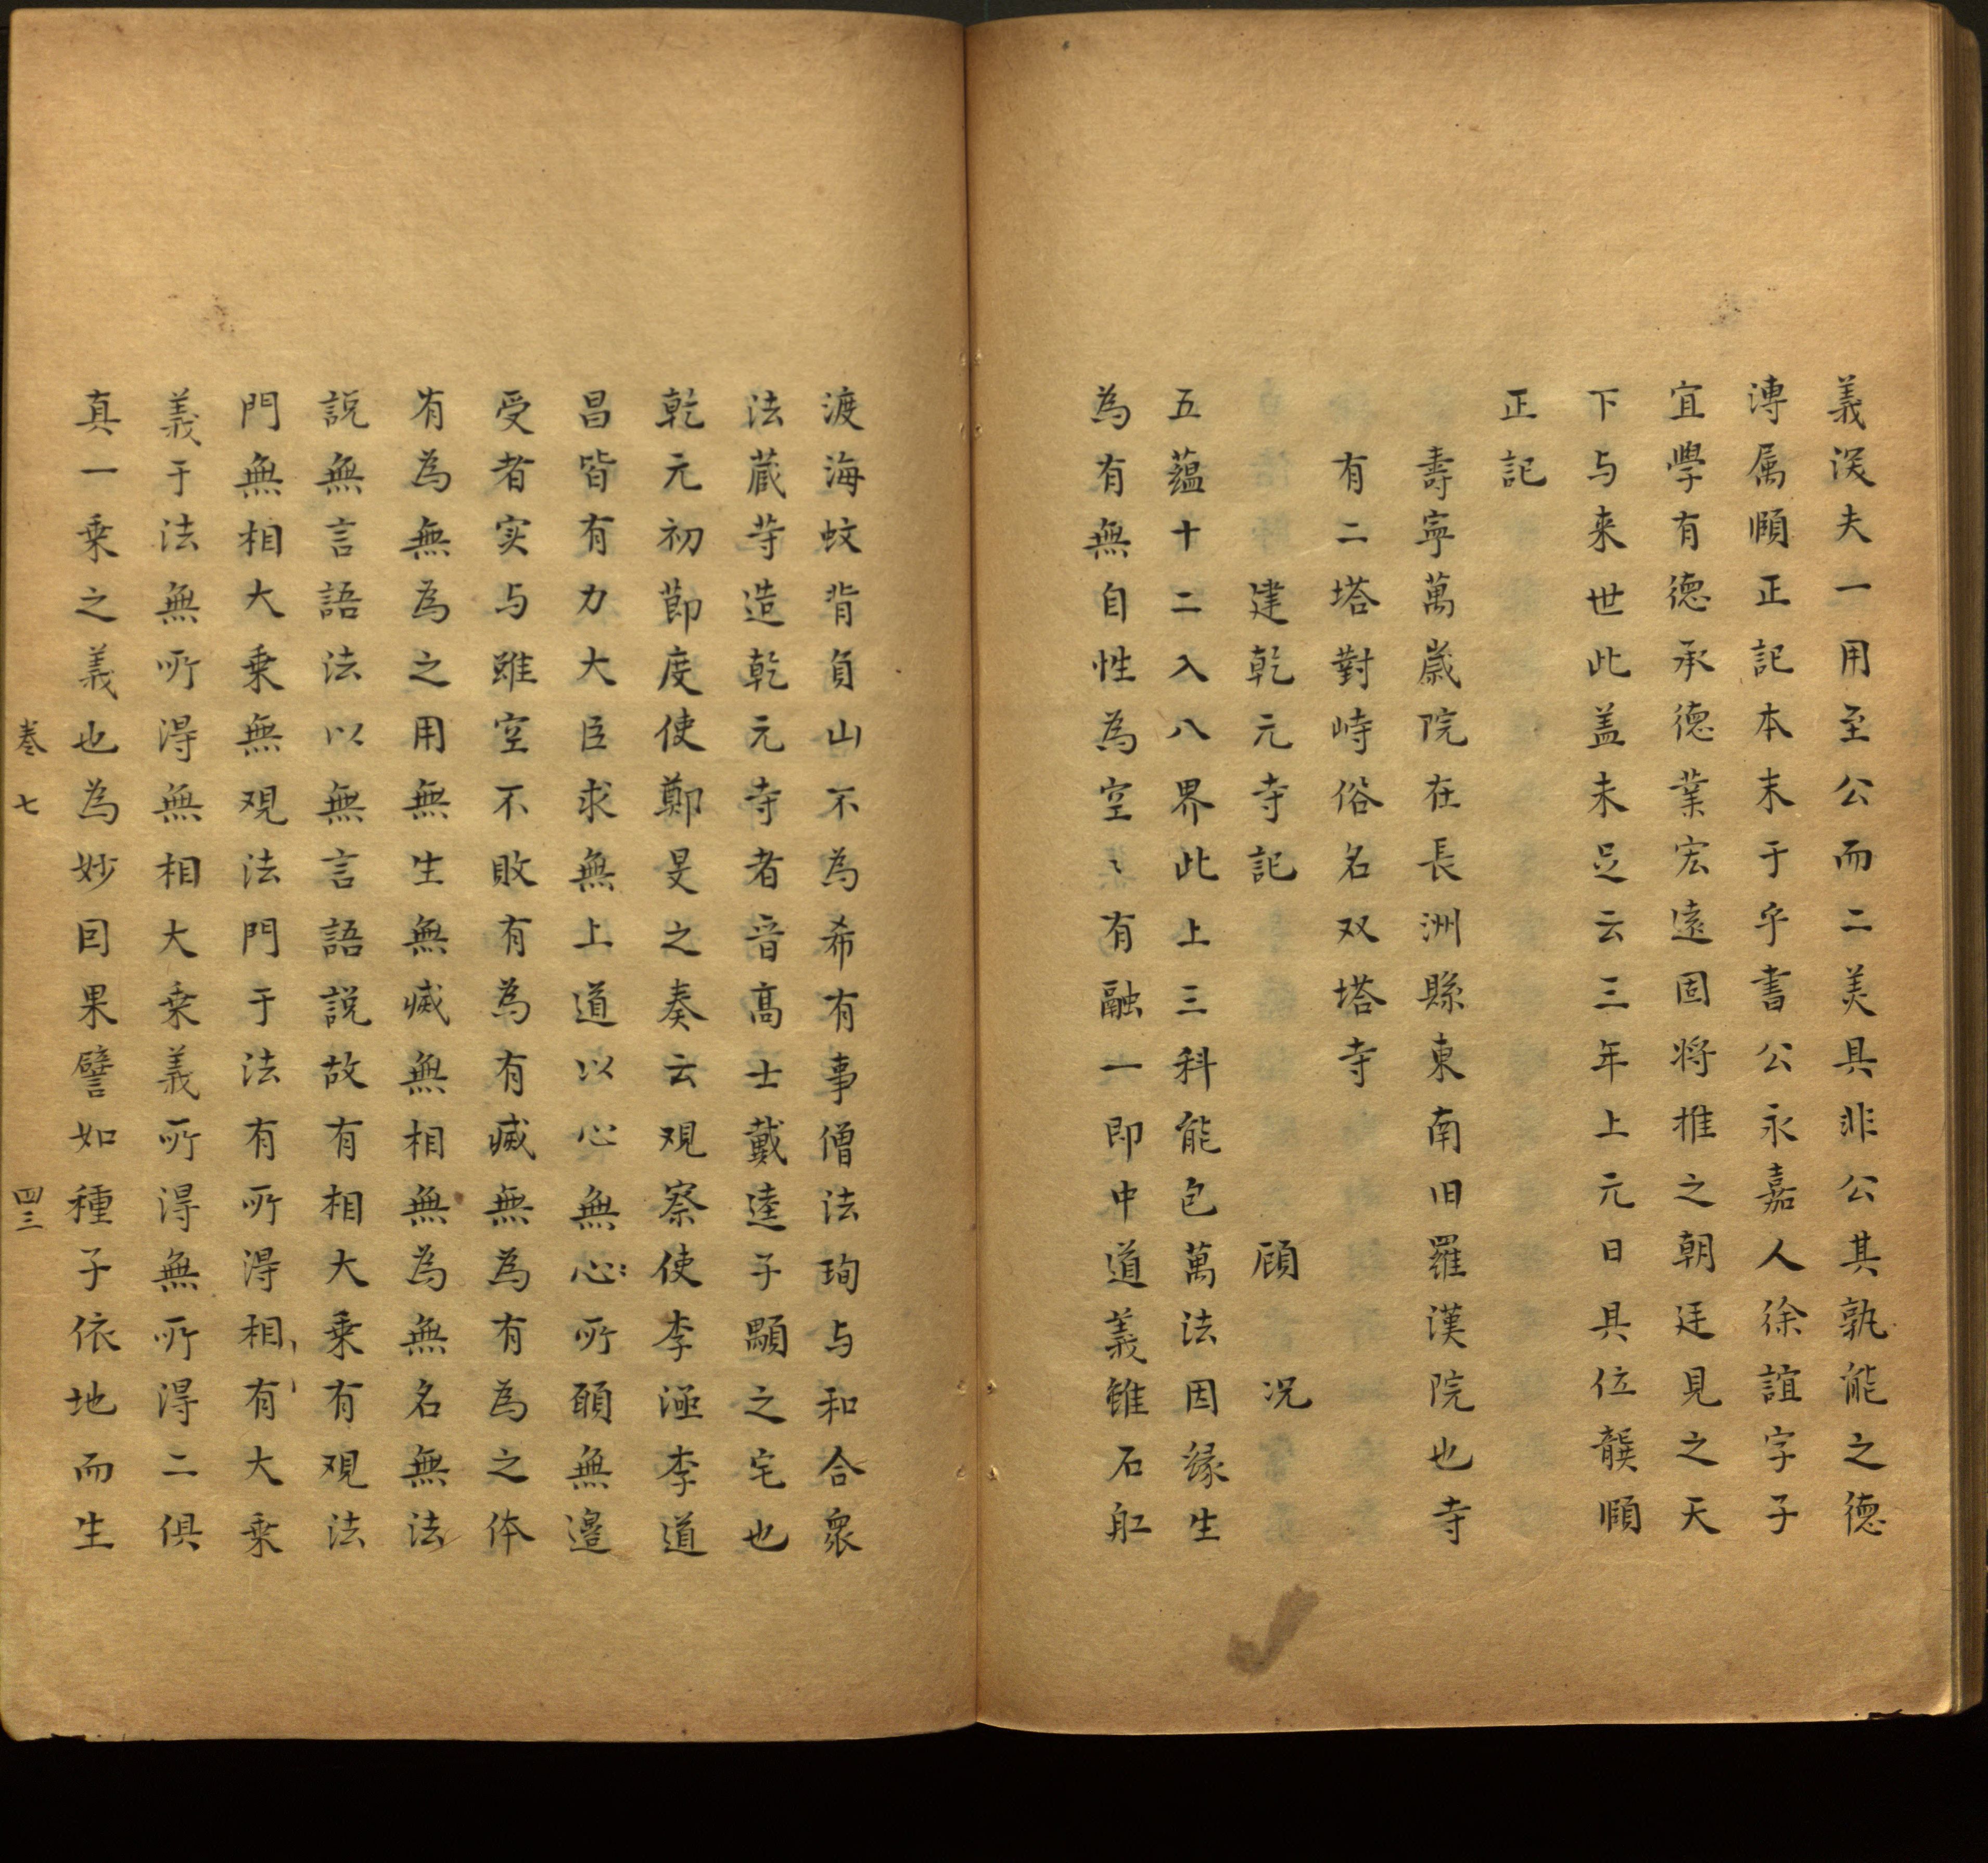 義深夫一用至公而二美具非公其孰能之德
溥属頤正記本末于乎書公永嘉人徐誼字子
宜學有德承德業宏遠固将推之朝廷見之天
下与来世此盖未足云三年上元日具位龔頤
正記
壽寧萬歳院在長洲縣東南旧羅漢院也寺
有二塔對峙俗名双塔寺
建乾元寺記　顧況
五蕴十二入八界此上三科能包萬法因縁生
為有無自性為空〻有融一即中道義錐石舡
渡海蚊背負山不為希有事僧法珣与和合衆
法蔵䓁造乾元寺者晋髙士戴逵子顒之宅也
乾元初節度使鄭炅之奏云观察使李涵李道
昌皆有力大臣求無上道以心無心〻所願無邉
受者实与雖空不敗有為有滅無為有為之体
有為無為之用無生無滅無相無為無名無法
説無言語法以無言語説故有相大乗有观法
門無相大乗無观法門于法有所淂相有大乗
義于法無所淂無相大乗義所淂無所淂二俱
真一乗之義也為妙囙果譬如種子依地而生
卷七　四三